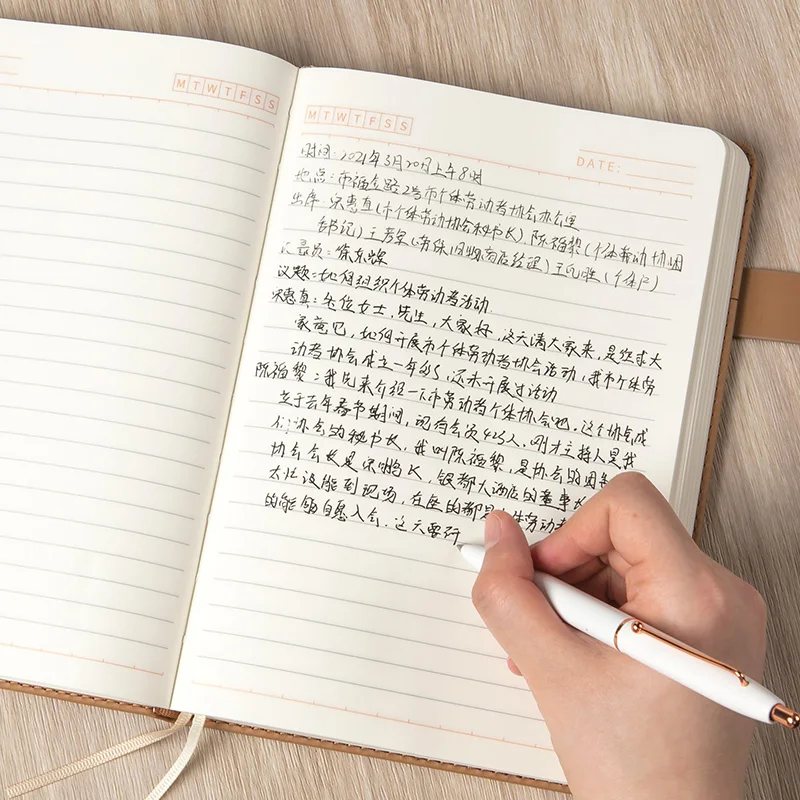 M T W T F S S
M T W T F S S
DATE:
时间:2021年3月20日上午8时
地点:市福金路2号市个体劳动者协会办公室
出席:宋惠真(市个体劳动协会秘书长) 陈福黎(个体劳动协团
支部书记) 王芳荣( 旧物商店经理) 王 胜(个体户)
记录员:徐东
议题:如何组织个体劳动者活动.
宋惠真:各位女士,先生,大家好,这天请大家来,是征求大
家意见,如何开展市个体劳动者协会活动,我市个体劳
动者协会成立一年多,还未开展过活动
陈福黎:我先来介绍一下市劳动者个体协会吧.这个协会成
立于去年春节期间,现有会员425人.刚才主持人是我
们协会的秘书长,我叫陈福黎,是协会的团支
协会会长是宋 长,银都大酒店的董事长
太忙没能到现场.在座的都是 体劳动者
的能够自愿入会.这天要研